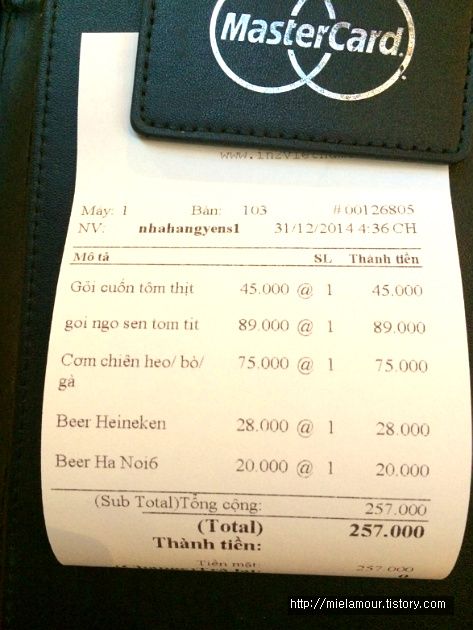 MasterCard
Máy: 1 Bàn: 103 #00126805
NV: nhahangyens1 31/12/2014 4:36 CH
Mô tả SL Thành tiền
Gỏi cuốn tôm thịt 45.000 @ 1 45.000
goi ngo sen tom tit 89.000 @ 1 89.000
Cơm chiên heo/ bò/ 75.000 @ 1 75.000
gà
Beer Heineken 28.000 @ 1 28.000
Beer Ha Noi6 20.000 @ 1 20.000
(Sub Total)Tổng cộng: 257.000
(Total) 257.000
Thành tiền:
Tiền mặt: 257.000
http://mielamour.tistory.com